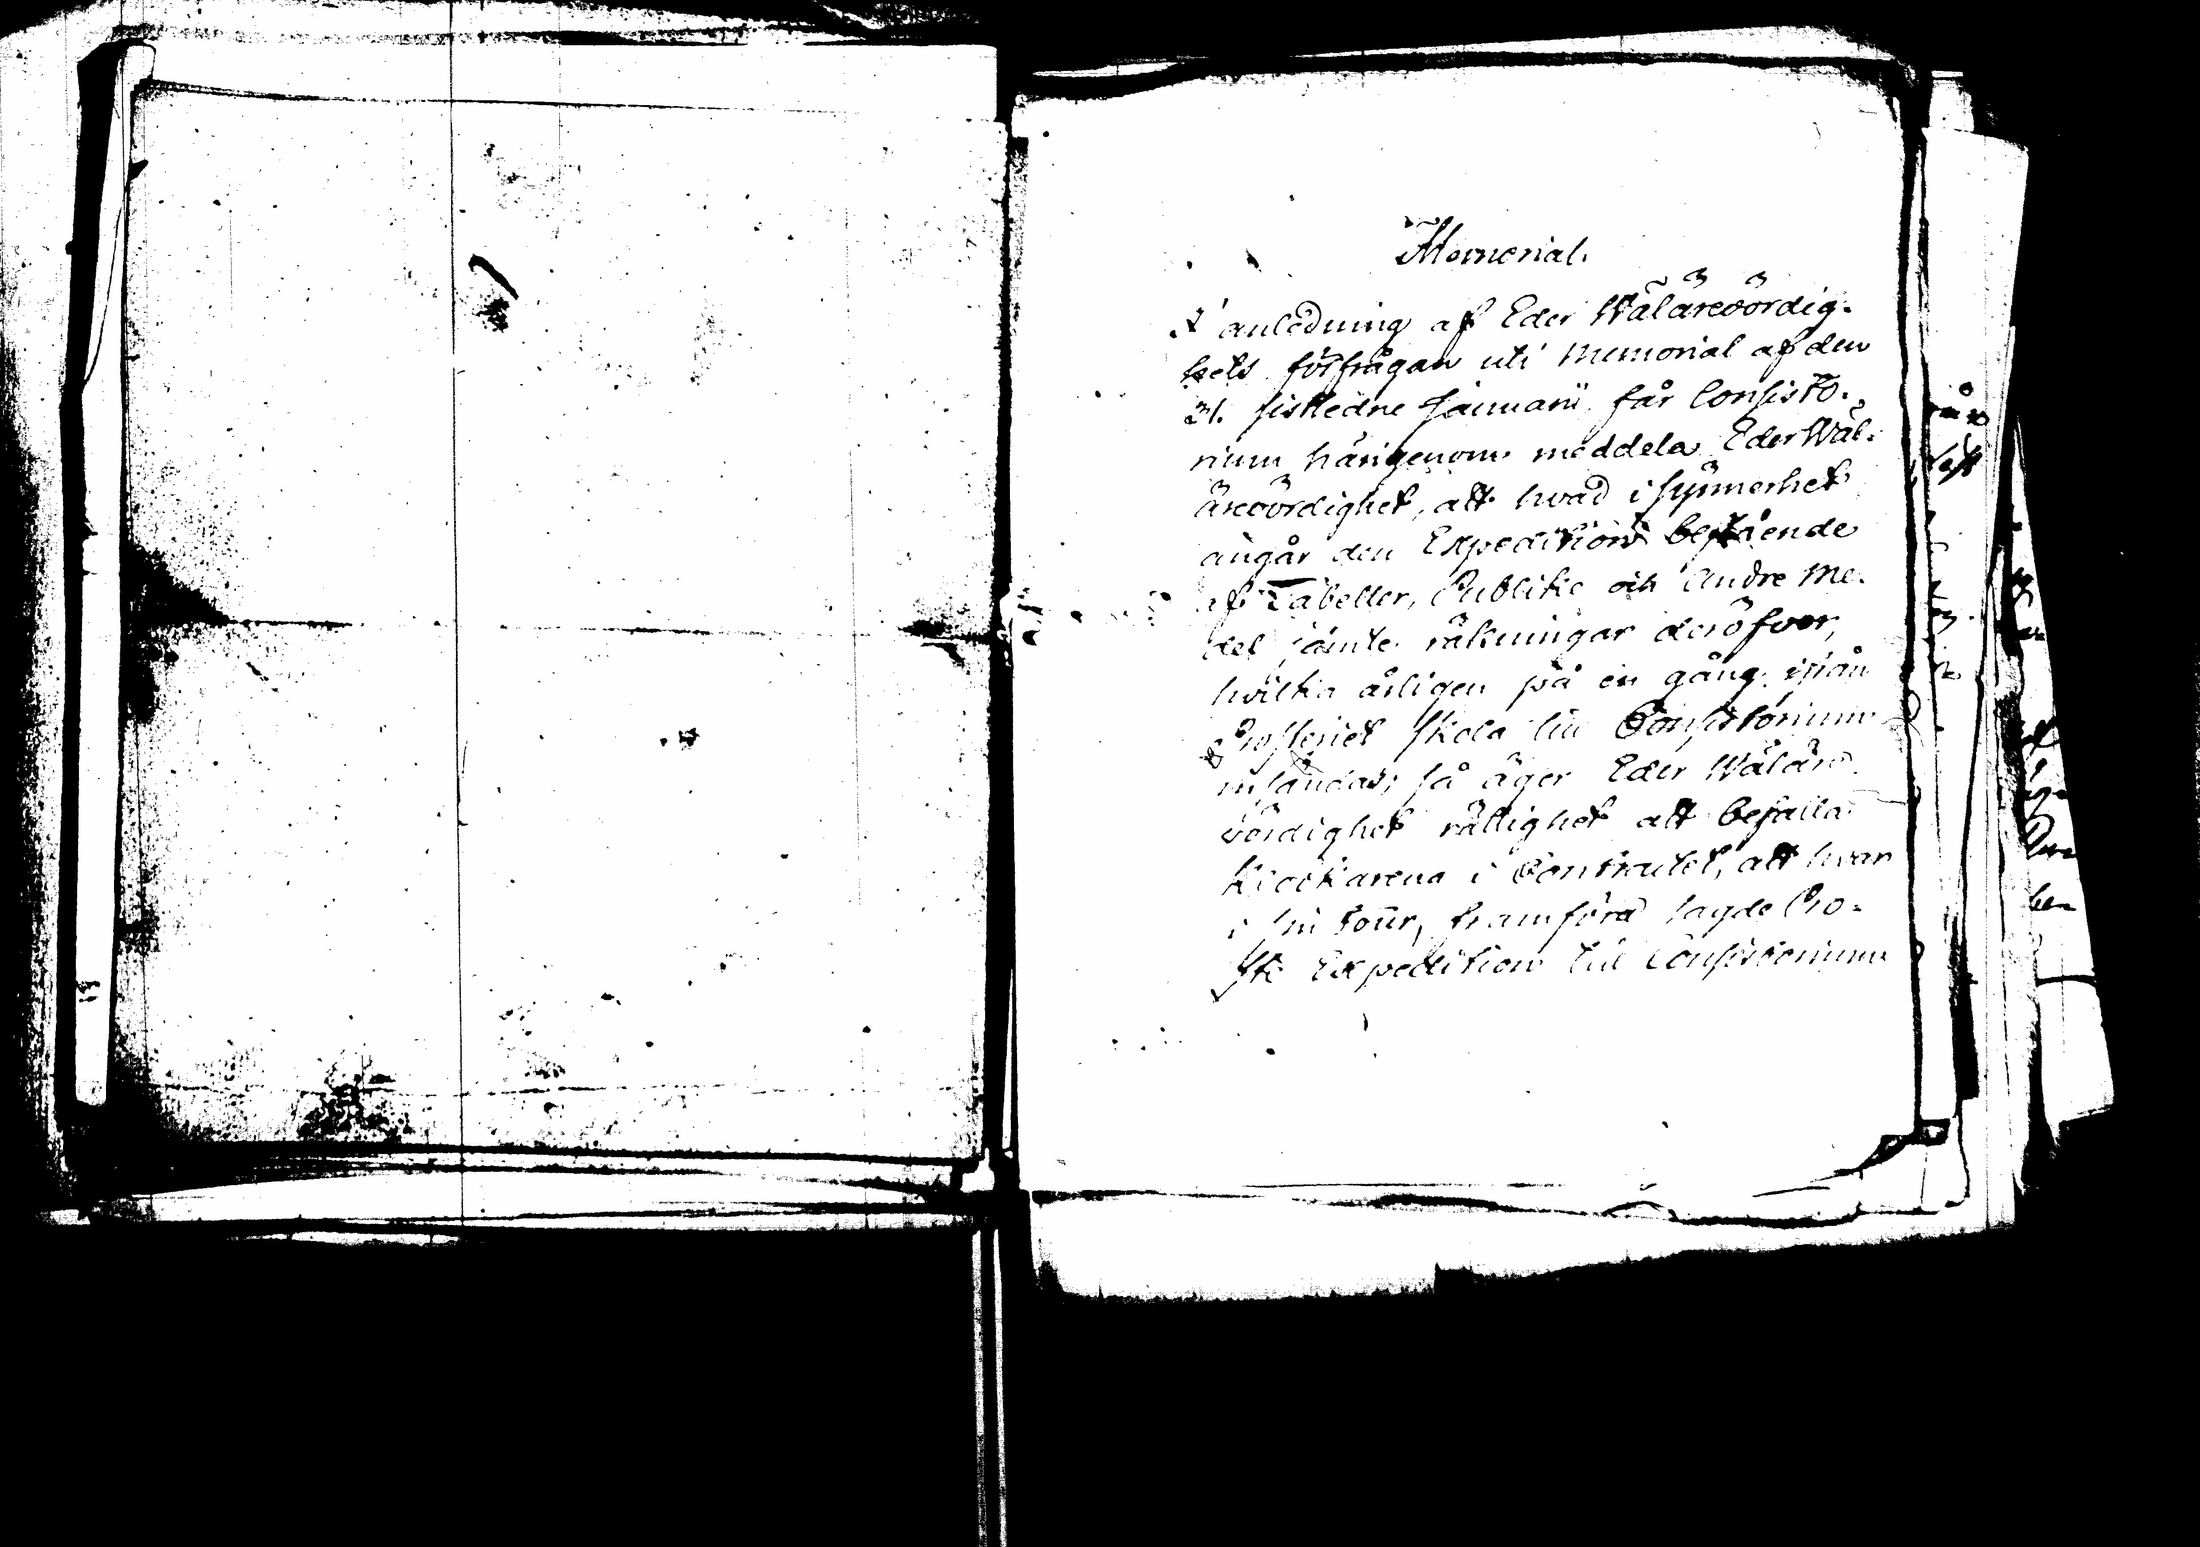 Memorial.
I anledning af Eder Wälärevördig-
hets förfrågan uti Memorial af den
31. sistledne Januarii får Consisto-
rium härigenom meddela Eder Wäl-
ärevördighet, att hvad i synnerhet
angår den Expedition bestående
af Tabeller, Publike och andre Me-
del jämte räkningar deröfver,
hvilka årligen på en gång ifrån
Prosteriet skola till Consistorium
insändas; så äger Eder Wäläre-
vördighet rättighet att befalla
Klockarena i Contractet, att hvar
i sin tour, framföra sagde Pro-
ste Expedition till Consistorium